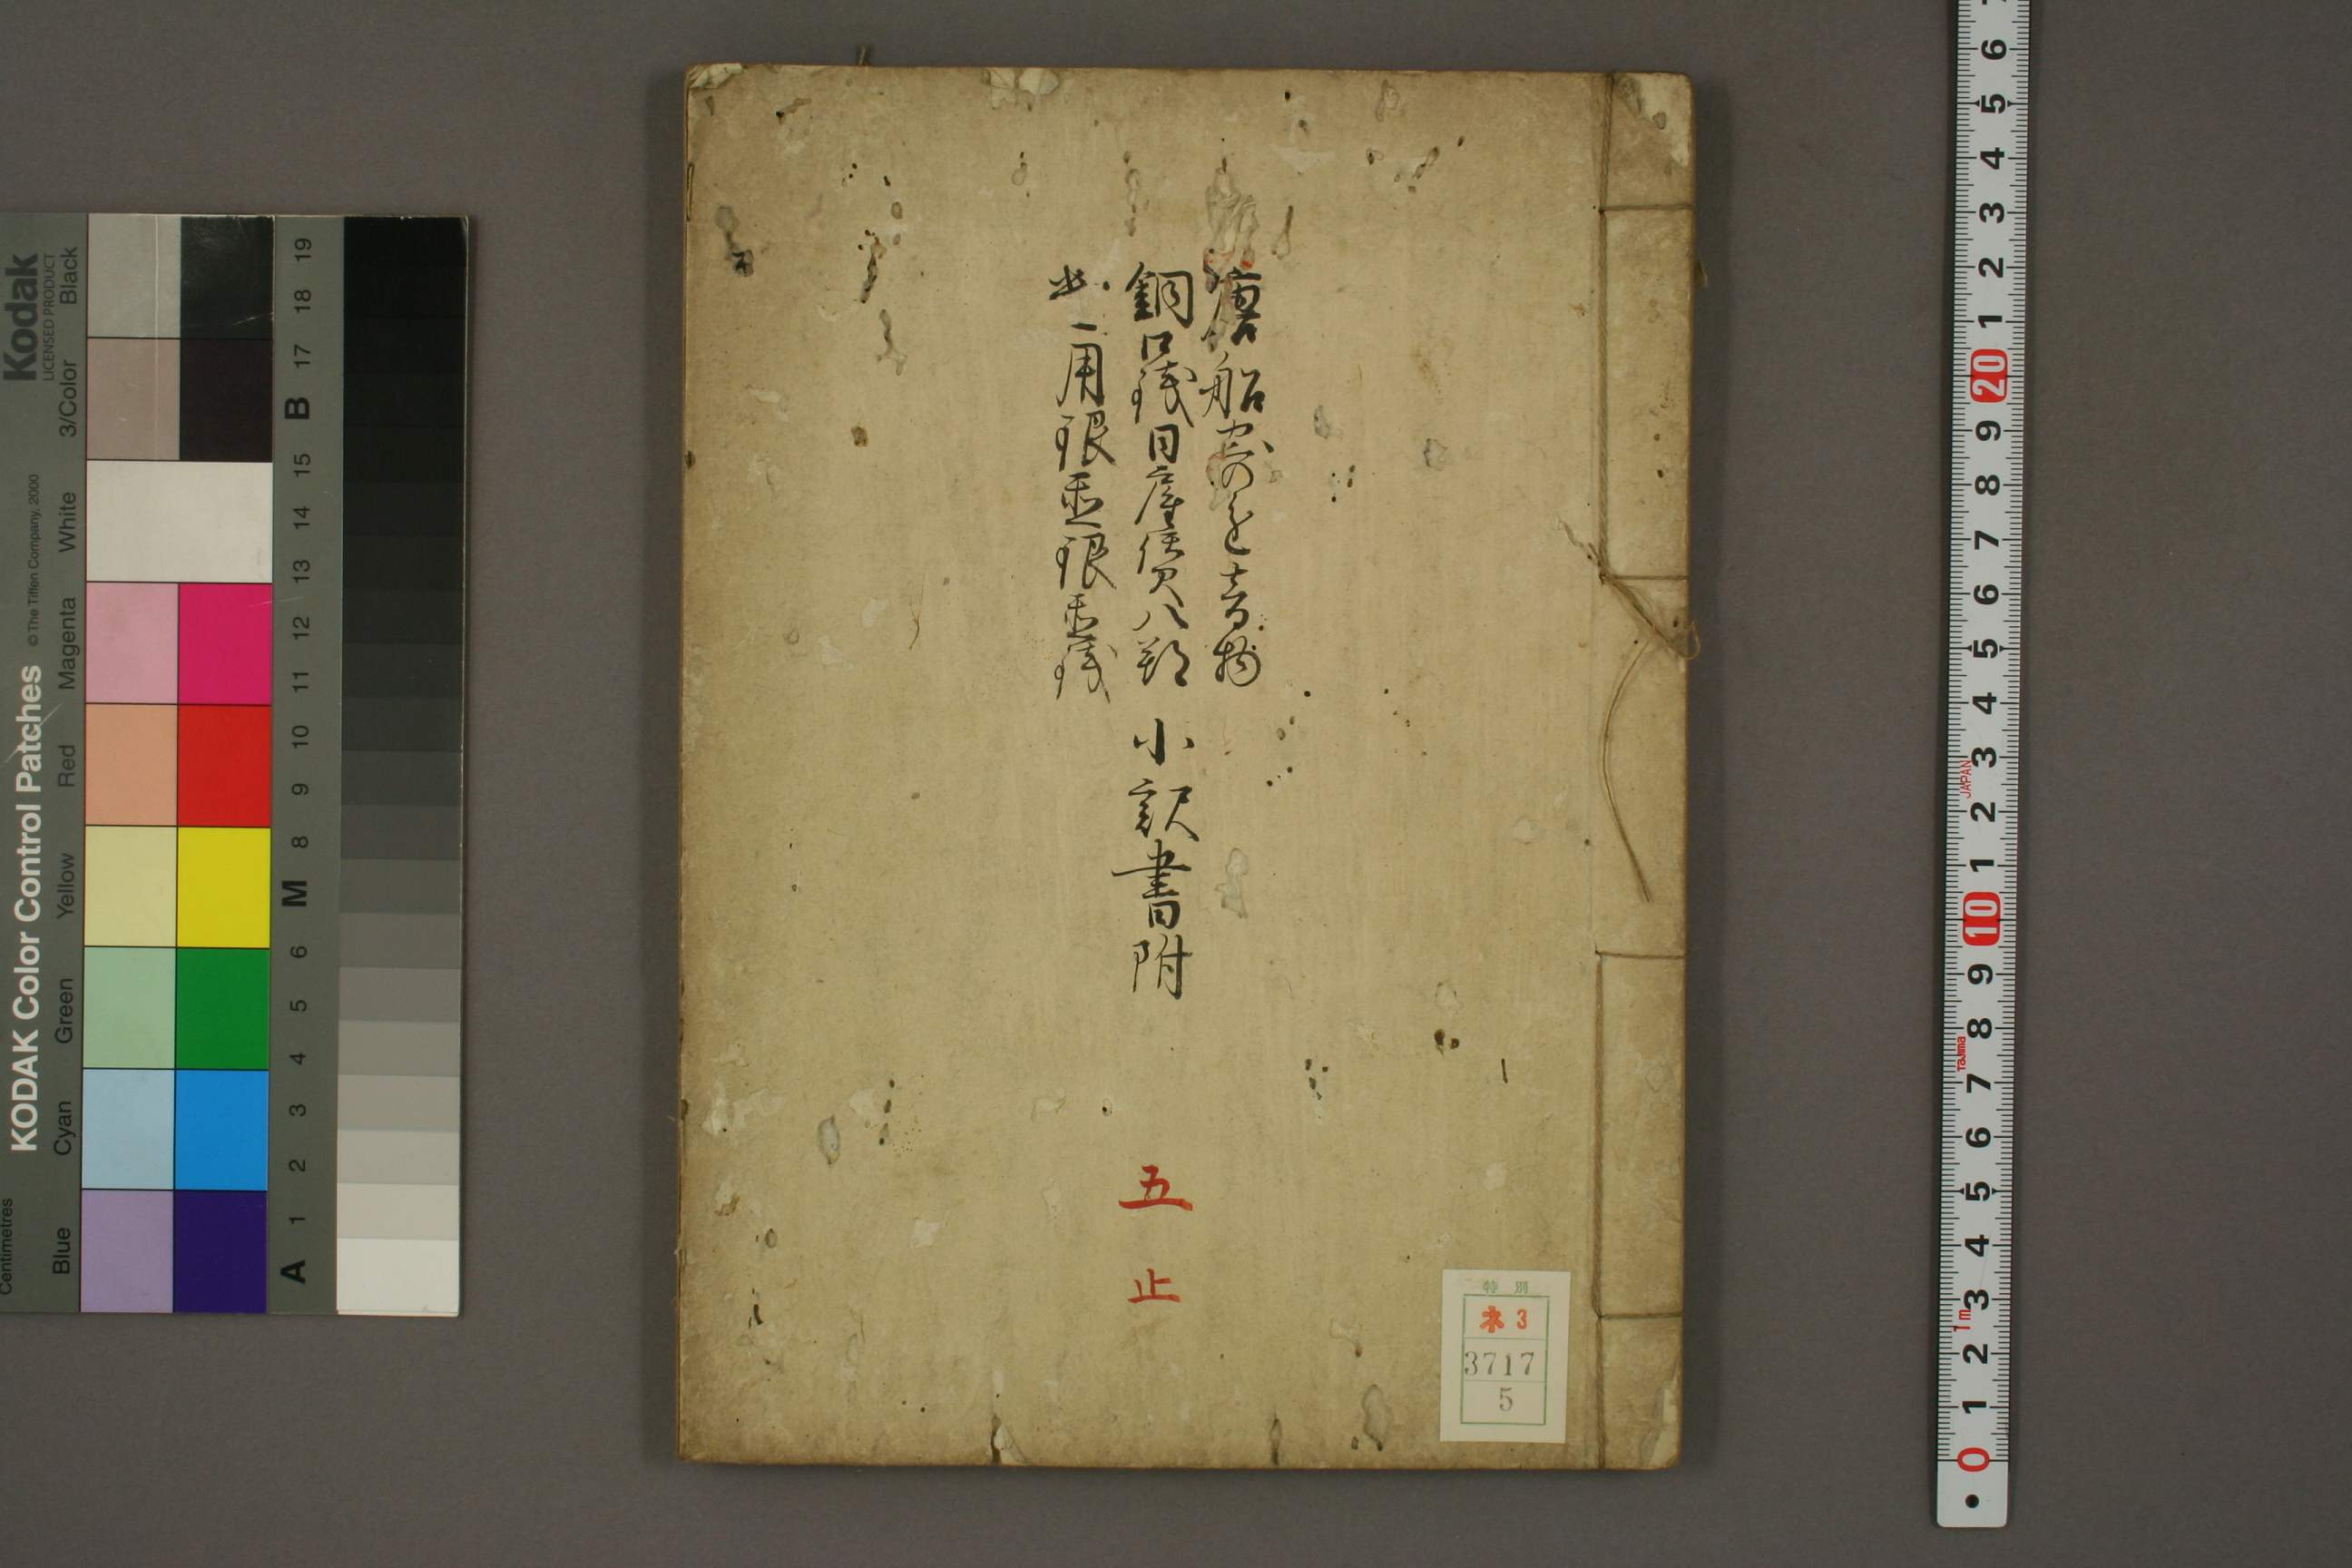 唐船寄進音物
銅口銭同座償八朔 小訳書附
並二用銀並銀並銭
五
止
特別
ネ 3
3717
5
Kodak
LICENSED PRODUCT
KODAK Color Control Patches
© The Tiffen Company, 2000
Centimetres
Blue Cyan Green Yellow Red Magenta White 3/Color Black
A 1 2 3 4 5 6 M 8 9 10 11 12 13 14 15 B 17 18 19
JAPAN
Tajima
1m
0 1 2 3 4 5 6 7 8 9 10 1 2 3 4 5 6 7 8 9 20 1 2 3 4 5 6